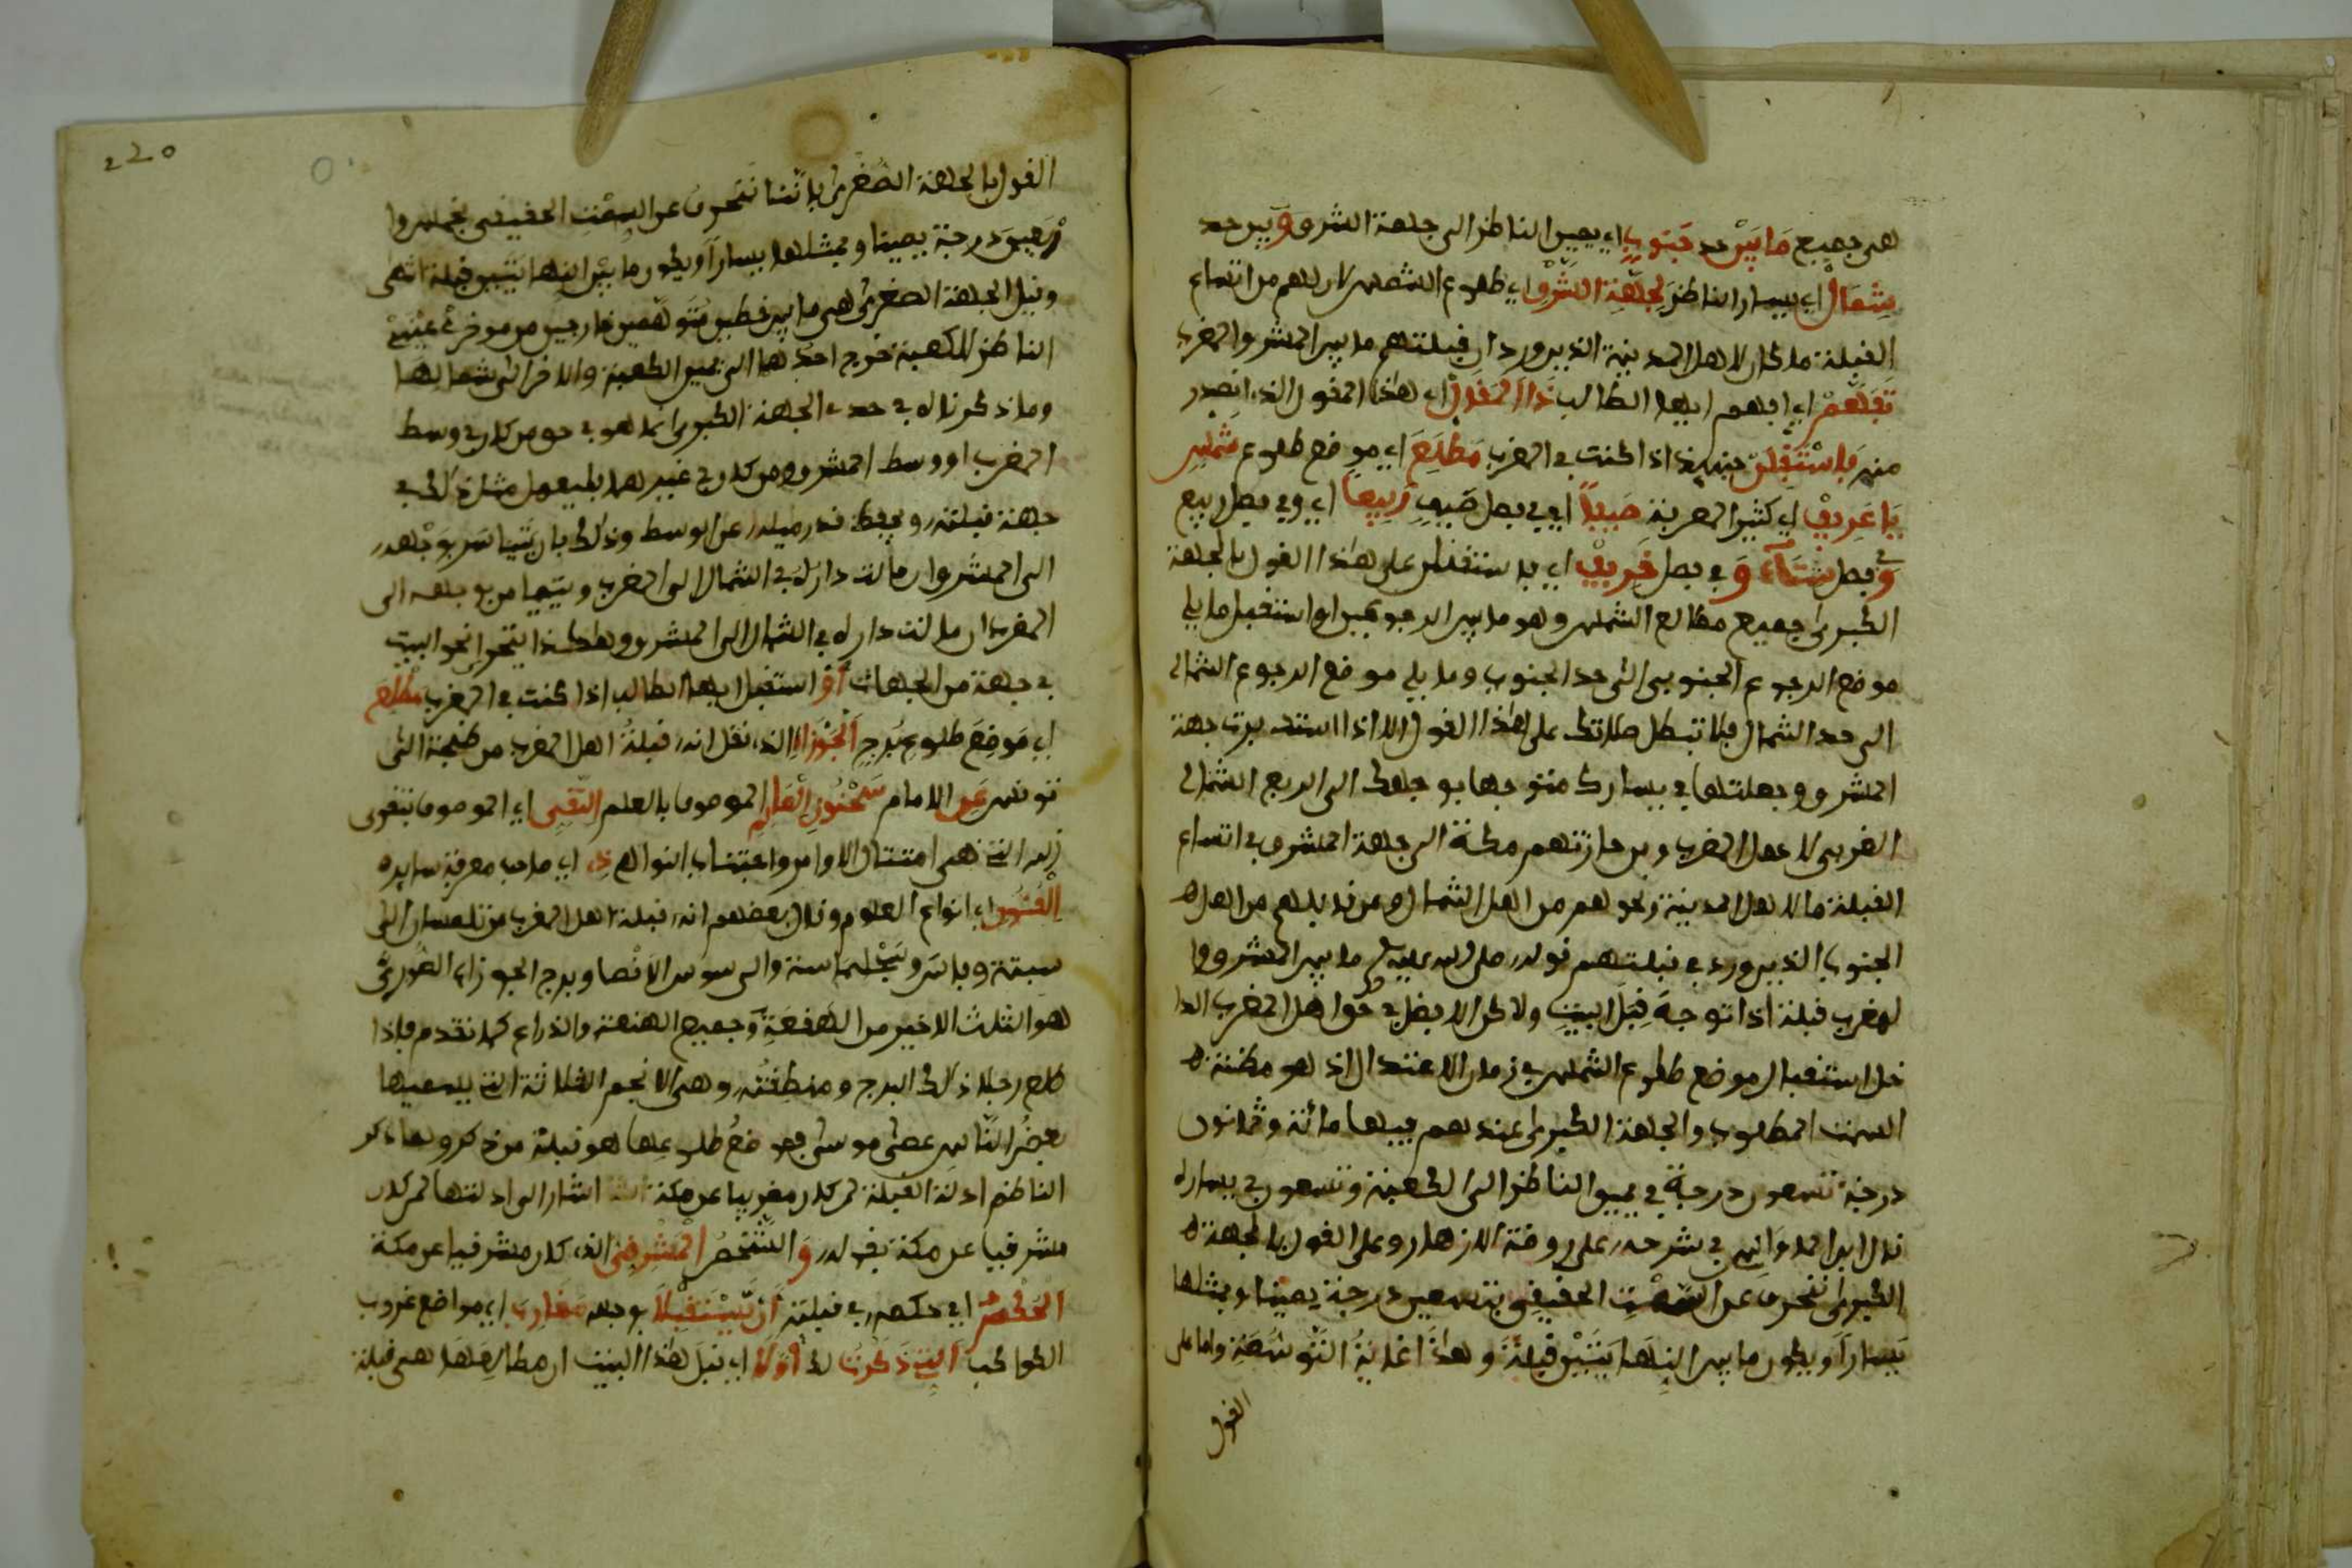 هي جميع ما بين حد جنوب اي يمين الناظر الى جهة الشرق وبين حد
شمال اي يسار الناظر لجهة الشرق اي طلوع الشمس لان لهم من اتساع
القبلة ما كان لاهل المدينة الذين ورد ان قبلتهم ما بين المشرق والمغرب
تفهم اي افهم ايها الطالب ذا المقول اي هذا المقول الذي
منه فاستقبلن حينئذ اذا كنت في المغرب مطلع اي موضع طلوع شمس
يا عريف اي كثير المعرفة صيفا اي في فصل صيف ربيعا اي وفي فصل ربيع
وفي فصل شتاء وفي فصل خريف اي فاستقبلن على هذا القول بالجهة
الكبرى جميع مطالع الشمس وهو ما بين الرجوعين او استقبل ما يلي
موضع الرجوع الجنوبي الى حد الجنوب وما يلي موضع الرجوع الشمالي
الى حد الشمال فلا تبطل صلاتك على هذا القول الا اذا استدبرت جهة
المشرق وجعلتها في يسارك متوجها بوجهك الى الربع الشمالي
الغربي لاهل المغرب ومن حازتهم مكة الى جهة المشرق في اتساع
القبلة ما لاهل المدينة ونحوهم من اهل الشمال ومن قابلهم من اهل
الجنوب الذين ورد في قبلتهم قوله صلى الله عليه وسلم ما بين المشرق وا
لمغرب قبلة اذا توجه قبل البيت ولاكن الافضل في حق اهل المغرب الدا
خل استقبال موضع طلوع الشمس في زمان الاعتدال اذ هو مظنة
السمت المطلوب والجهة الكبرى عندهم فيها مائة وثمانون
درجة تسعون درجة في يمين الناظر الى الكعبة وتسعون في يساره
قال ابن المواس في شرحه على روضة الازهار وعلى القول بالجهة
الكبرى ننحرف عن السمت الحقيقي بتسعين درجة يمينا وبمثلها
يسارا ويكون ما بين النهايتين قبلة وهذا غاية التوسعة واما على
القول
220
القول بالجهة الصغرى فاننا ننحرف عن السمت الحقيقي بخمس وا
ربعين درجة يمينا وبمثلها يسارا ويكون ما بين النهايتين قبلة انتهى
وقيل الجهة الصغرى هي ما بين خطين متوهمين خارجين من موخر عيني
الناظر للكعبة خرج احدهما الى يمين الكعبة والاخر الى شمالها
وما ذكرناه في حد الجهة الكبرى انما هو في حق من كان في وسط
المغرب او وسط المشرق ومن كان في غيرهما فليعمل مثل ذلك في
جهة قبلته ويحفظ قدر ميله عن الوسط وذلك بان يتياسر بوجهه
الى المشرق ان مالت داره في الشمال الى المغرب ويتيامن بوجهه الى
المغرب ان مالت داره في الشمال الى المشرق وهكذا يتحرى نحو البيت
في جهة من الجهات او استقبل ايها الطالب اذا كنت في المغرب مطلع
اي موضع طلوع برج الجوزا الذي نقل انه قبلة اهل المغرب من طنجة الى
تونس عن الامام سحنون العالم الموصوف بالعلم التقي اي الموصوف بتقوى
ربه التي هي امتثال الاوامر واجتناب النواهي ذي اي صاحب معرفة سايره
الفنون اي انواع العلوم وقال بعضهم انه قبلة اهل المغرب من تلمسان الى
سبتة وفاس وسجلماسة والى سوس الاقصا وبرج الجوزاء الصوري
هو الثلث الاخير من الهقعة وجميع الهنعة والذراع كما تقدم فاذا
طلع رجلا ذلك البرج ومنطقته وهي الانجم الثلاثة التي يسميها
بعض الناس عصى موسى فموضع طلوعها هو قبلة من ذكر ولما ذكر
الناظم ادلة القبلة لمن كان مغربيا عن مكة اشار الى ادلتها لمن كان
مشرقيا عن مكة بقوله والشخص المشرقي الذي كان مشرقيا عن مكة
الحكم اي حكمه في قبلته ان يستقبلا بوجهه مغارب اي مواضع غروب
الكواكب التي ذكرت لك اولا اي قبل هذا البيت ان مطالعها هي قبلة